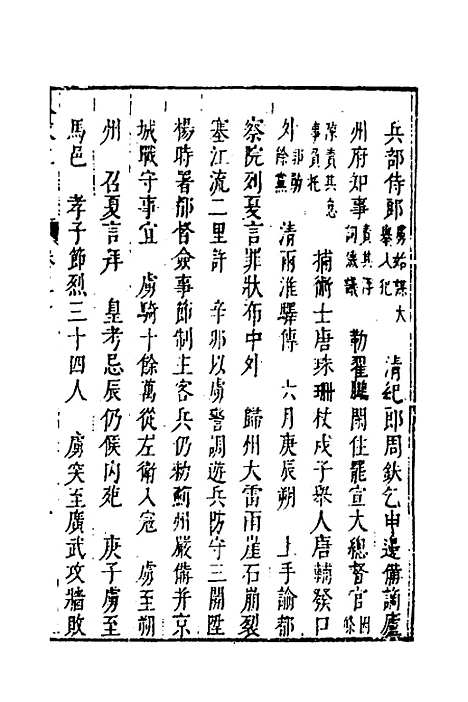 兵部侍郎虜始謀大舉入犯 清紀郎周鈇乞申邊備謫廬
州府知事責其浮詞僥議 勒翟鵬閑住罷宣大總督官因條
陳責其怠事負托 捕術士唐珠珊杖戍子舉人唐輔發口
外郭勛餘黨 清兩淮驛傳 六月庚辰朔 上手諭都
察院列夏言罪狀布中外 歸州大雷雨崖石崩裂
塞江流二里許 辛卯以虜警調遊兵防守三關陞
楊時署都督僉事節制主客兵仍勑薊州嚴備并京
城戰守事宜 虜騎十餘萬從左衛入寇 虜至朔
州 召夏言拜 皇考忌辰仍候內苑 庚子虜至
馬邑 孝子節烈三十四人 虜突至廣武攻牆敗